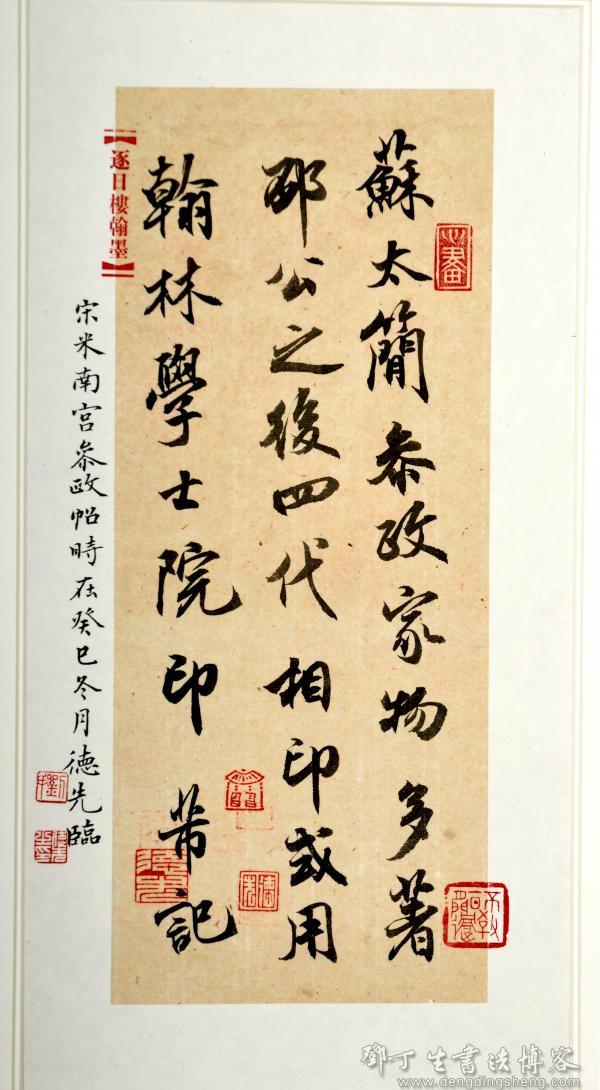 蘇太簡參政家物多著
邳公之後四代相印或用
翰林學士院印 芾記
【逐日樓翰墨】
宋米南宮參政帖時在癸巳冬月德先臨
心畫
鄧丁生書法博客
www.dengdingsheng.com